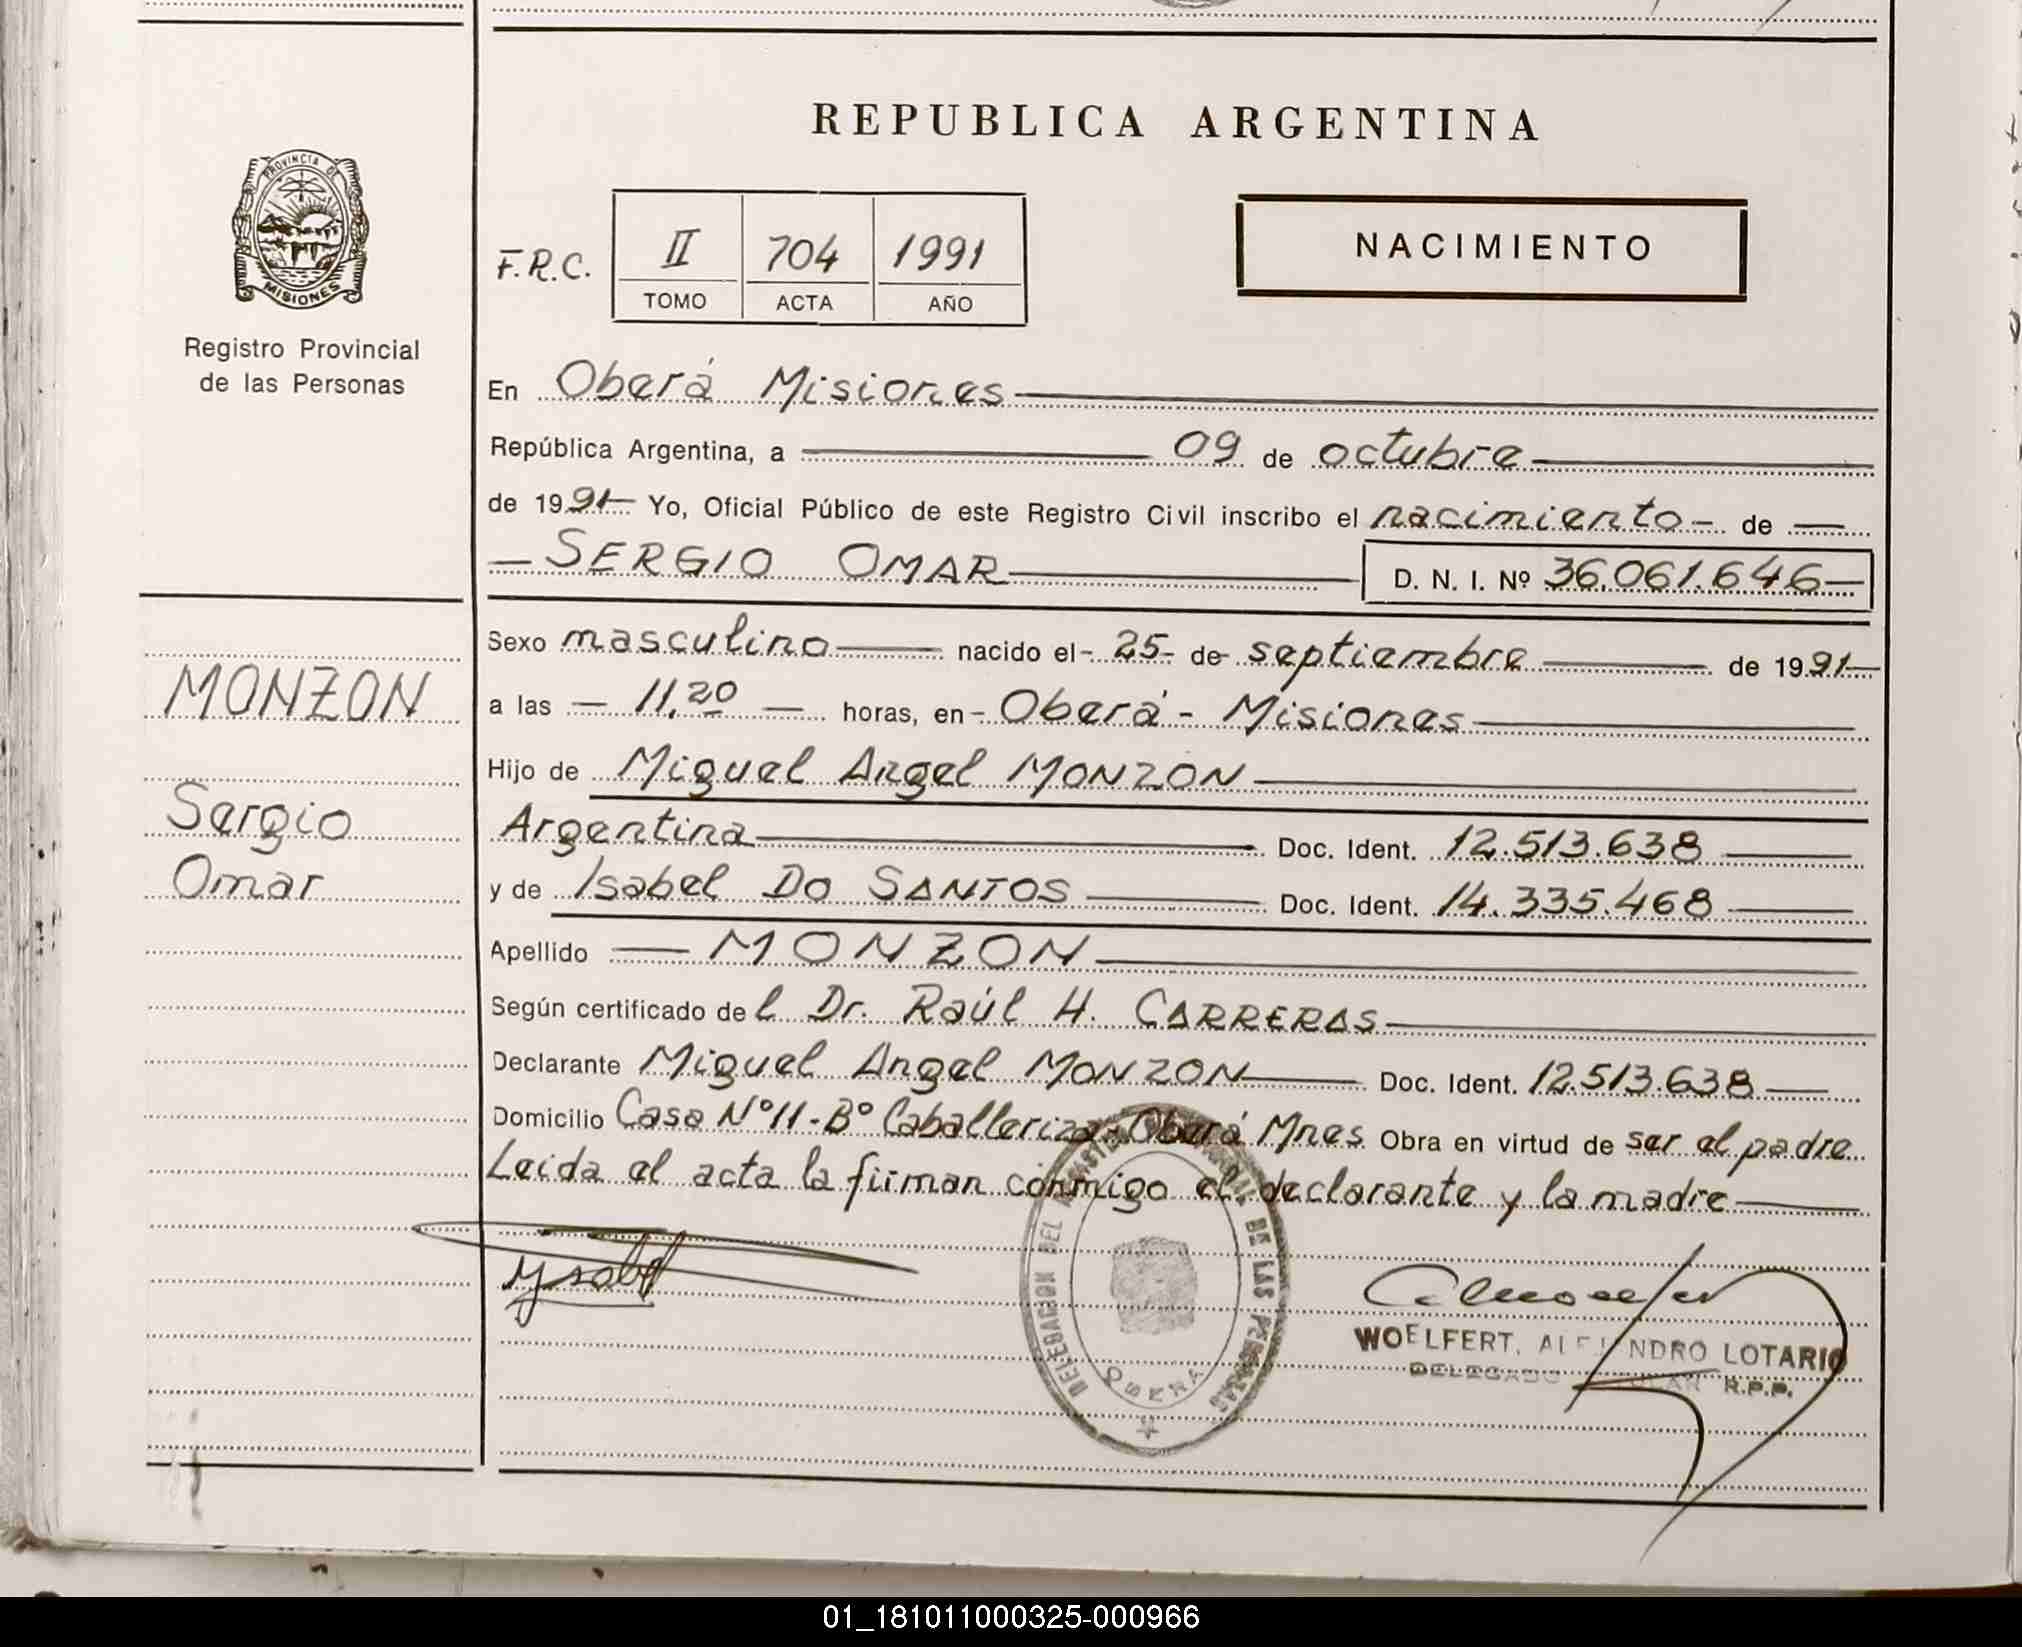 REPUBLICA ARGENTINA
PROVINCIA DE
MISIONES
Registro Provincial
de las Personas
F.R.C. II 704 1991
TOMO ACTA AÑO
NACIMIENTO
En Oberá Misiones
República Argentina, a 09 de octubre
de 1991 Yo, Oficial Público de este Registro Civil inscribo el nacimiento de
SERGIO OMAR D. N. I. Nº 36.061.646
MONZON
Sergio
Omar
Sexo masculino nacido el 25 de septiembre de 1991
a las 11,20 horas, en Oberá - Misiones
Hijo de Miguel Angel MONZON
Argentina Doc. Ident. 12.513.638
y de Isabel DO SANTOS Doc. Ident. 14.335.468
Apellido MONZON
Según certificado del Dr. Raúl H. CARRERAS
Declarante Miguel Angel MONZON Doc. Ident. 12.513.638
Domicilio Casa Nº11-Bº Caballeriza-Oberá Mnes Obra en virtud de ser el padre
Leida el acta la firman conmigo el declarante y la madre
Ysabel
DELEGACION DEL DE LAS PERSONAS
OBERA
WOELFERT, ALEJANDRO LOTARIO
DELEGADO R.P.P.
01_181011000325-000966